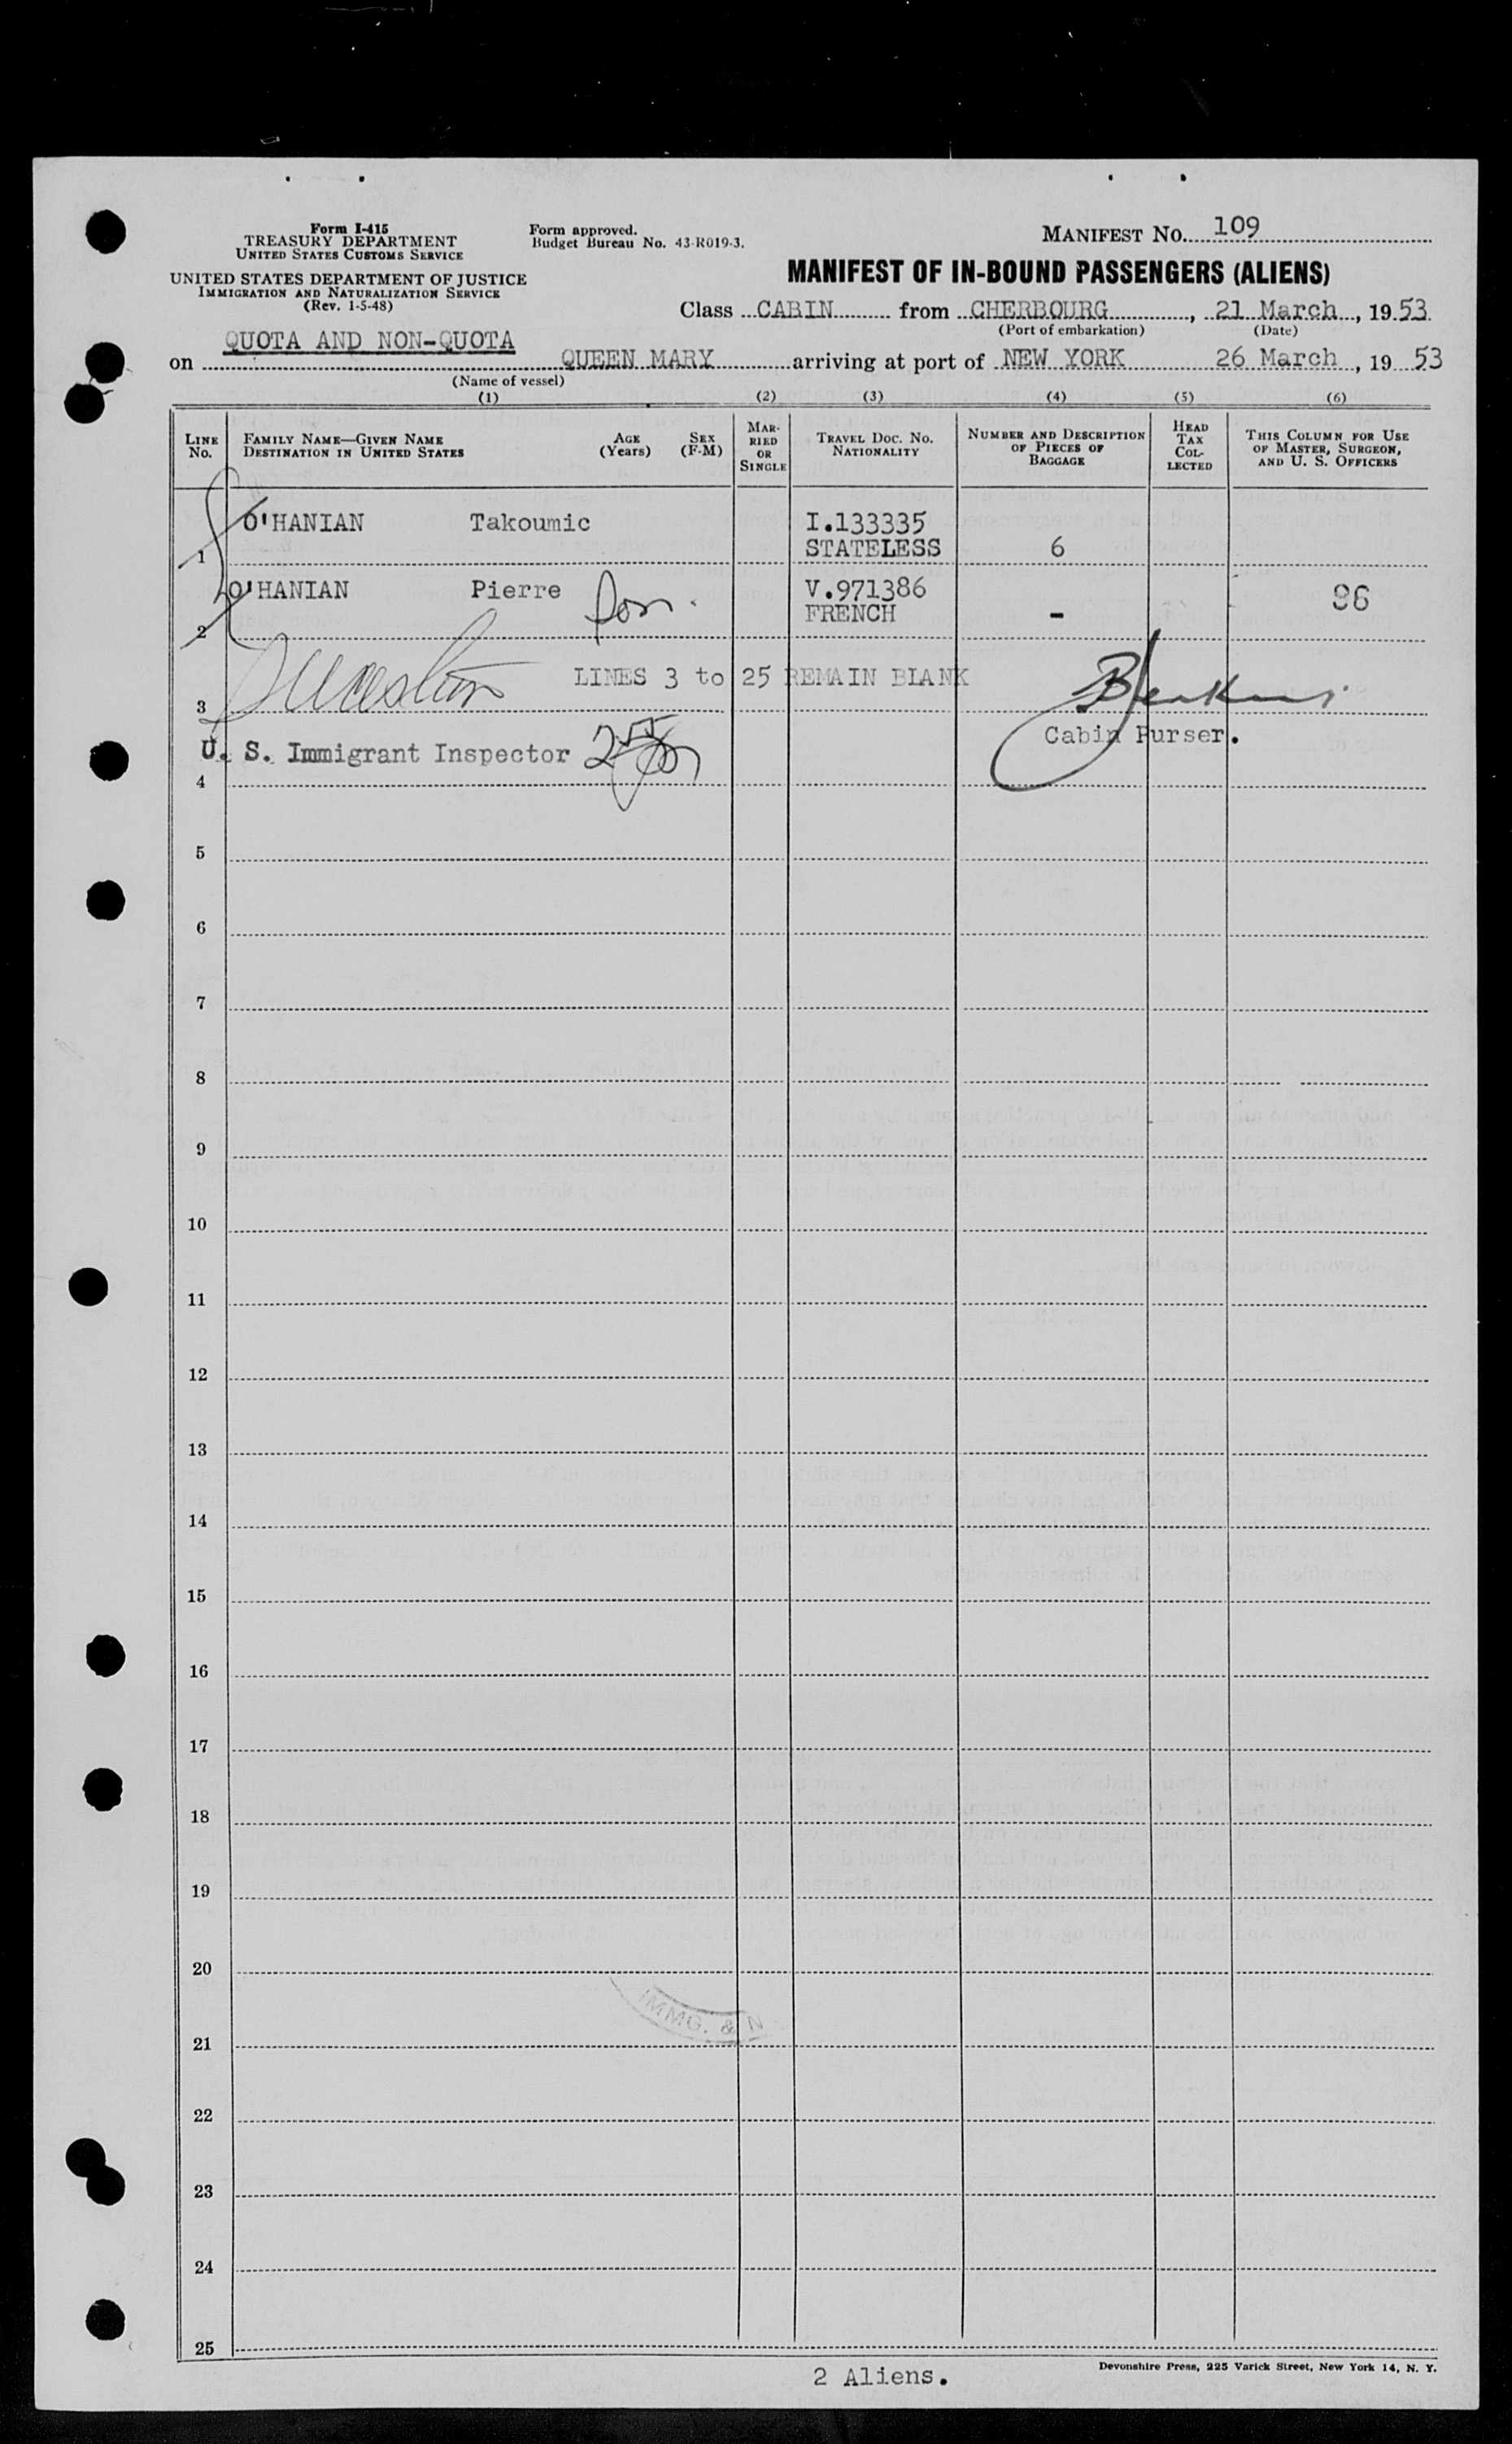 Form I-415
TREASURY DEPARTMENT
UNITED STATES CUSTOMS SERVICE
UNITED STATES DEPARTMENT OF JUSTICE
IMMIGRATION AND NATURALIZATION SERVICE
(Rev. 1-5-48)
Form approved.
Budget Bureau No. 43-R019-3.
MANIFEST NO. 109
MANIFEST OF IN-BOUND PASSENGERS (ALIENS)
Class CABIN from CHERBOURG, 21 March, 1953
(Port of embarkation) (Date)
QUOTA AND NON-QUOTA
on QUEEN MARY arriving at port of NEW YORK 26 March, 1953
(Name of vessel)
(1) (2) (3) (4) (5) (6)
LINE No. FAMILY NAME—GIVEN NAME DESTINATION IN UNITED STATES AGE (Years) SEX (F-M) MARRIED OR SINGLE TRAVEL DOC. NO. NATIONALITY NUMBER AND DESCRIPTION OF PIECES OF BAGGAGE HEAD TAX COLLECTED THIS COLUMN FOR USE OF MASTER, SURGEON, AND U. S. OFFICERS
O'HANIAN Takoumic I.133335
1 STATELESS 6
O'HANIAN Pierre son. V.971386 96
2 FRENCH -
LINES 3 to 25 REMAIN BLANK
3
Cabin Purser.
U. S. Immigrant Inspector
4
5
6
7
8
9
10
11
12
13
14
15
16
17
18
19
20
IMMG. & N
21
22
23
24
25
2 Aliens.
Devonshire Press, 225 Varick Street, New York 14, N. Y.